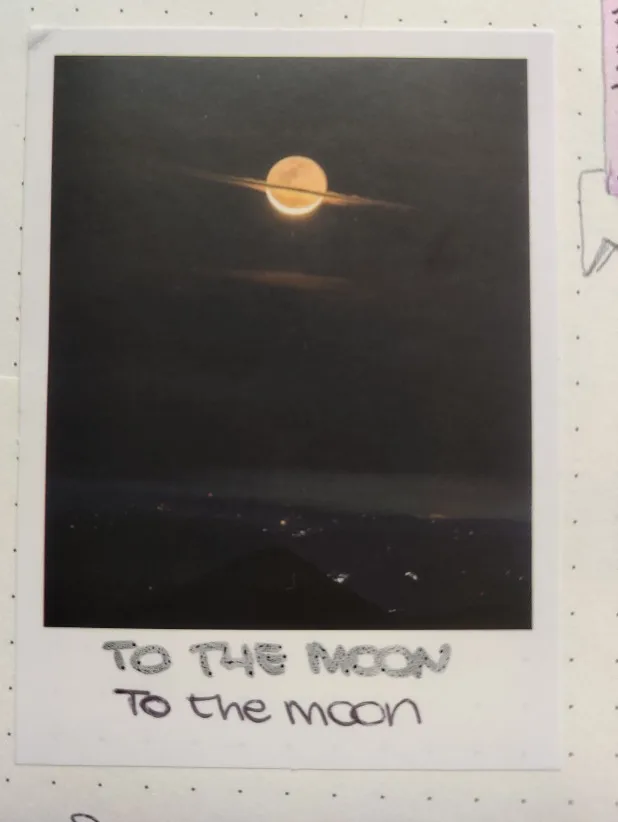 TO THE MOON
To the moon